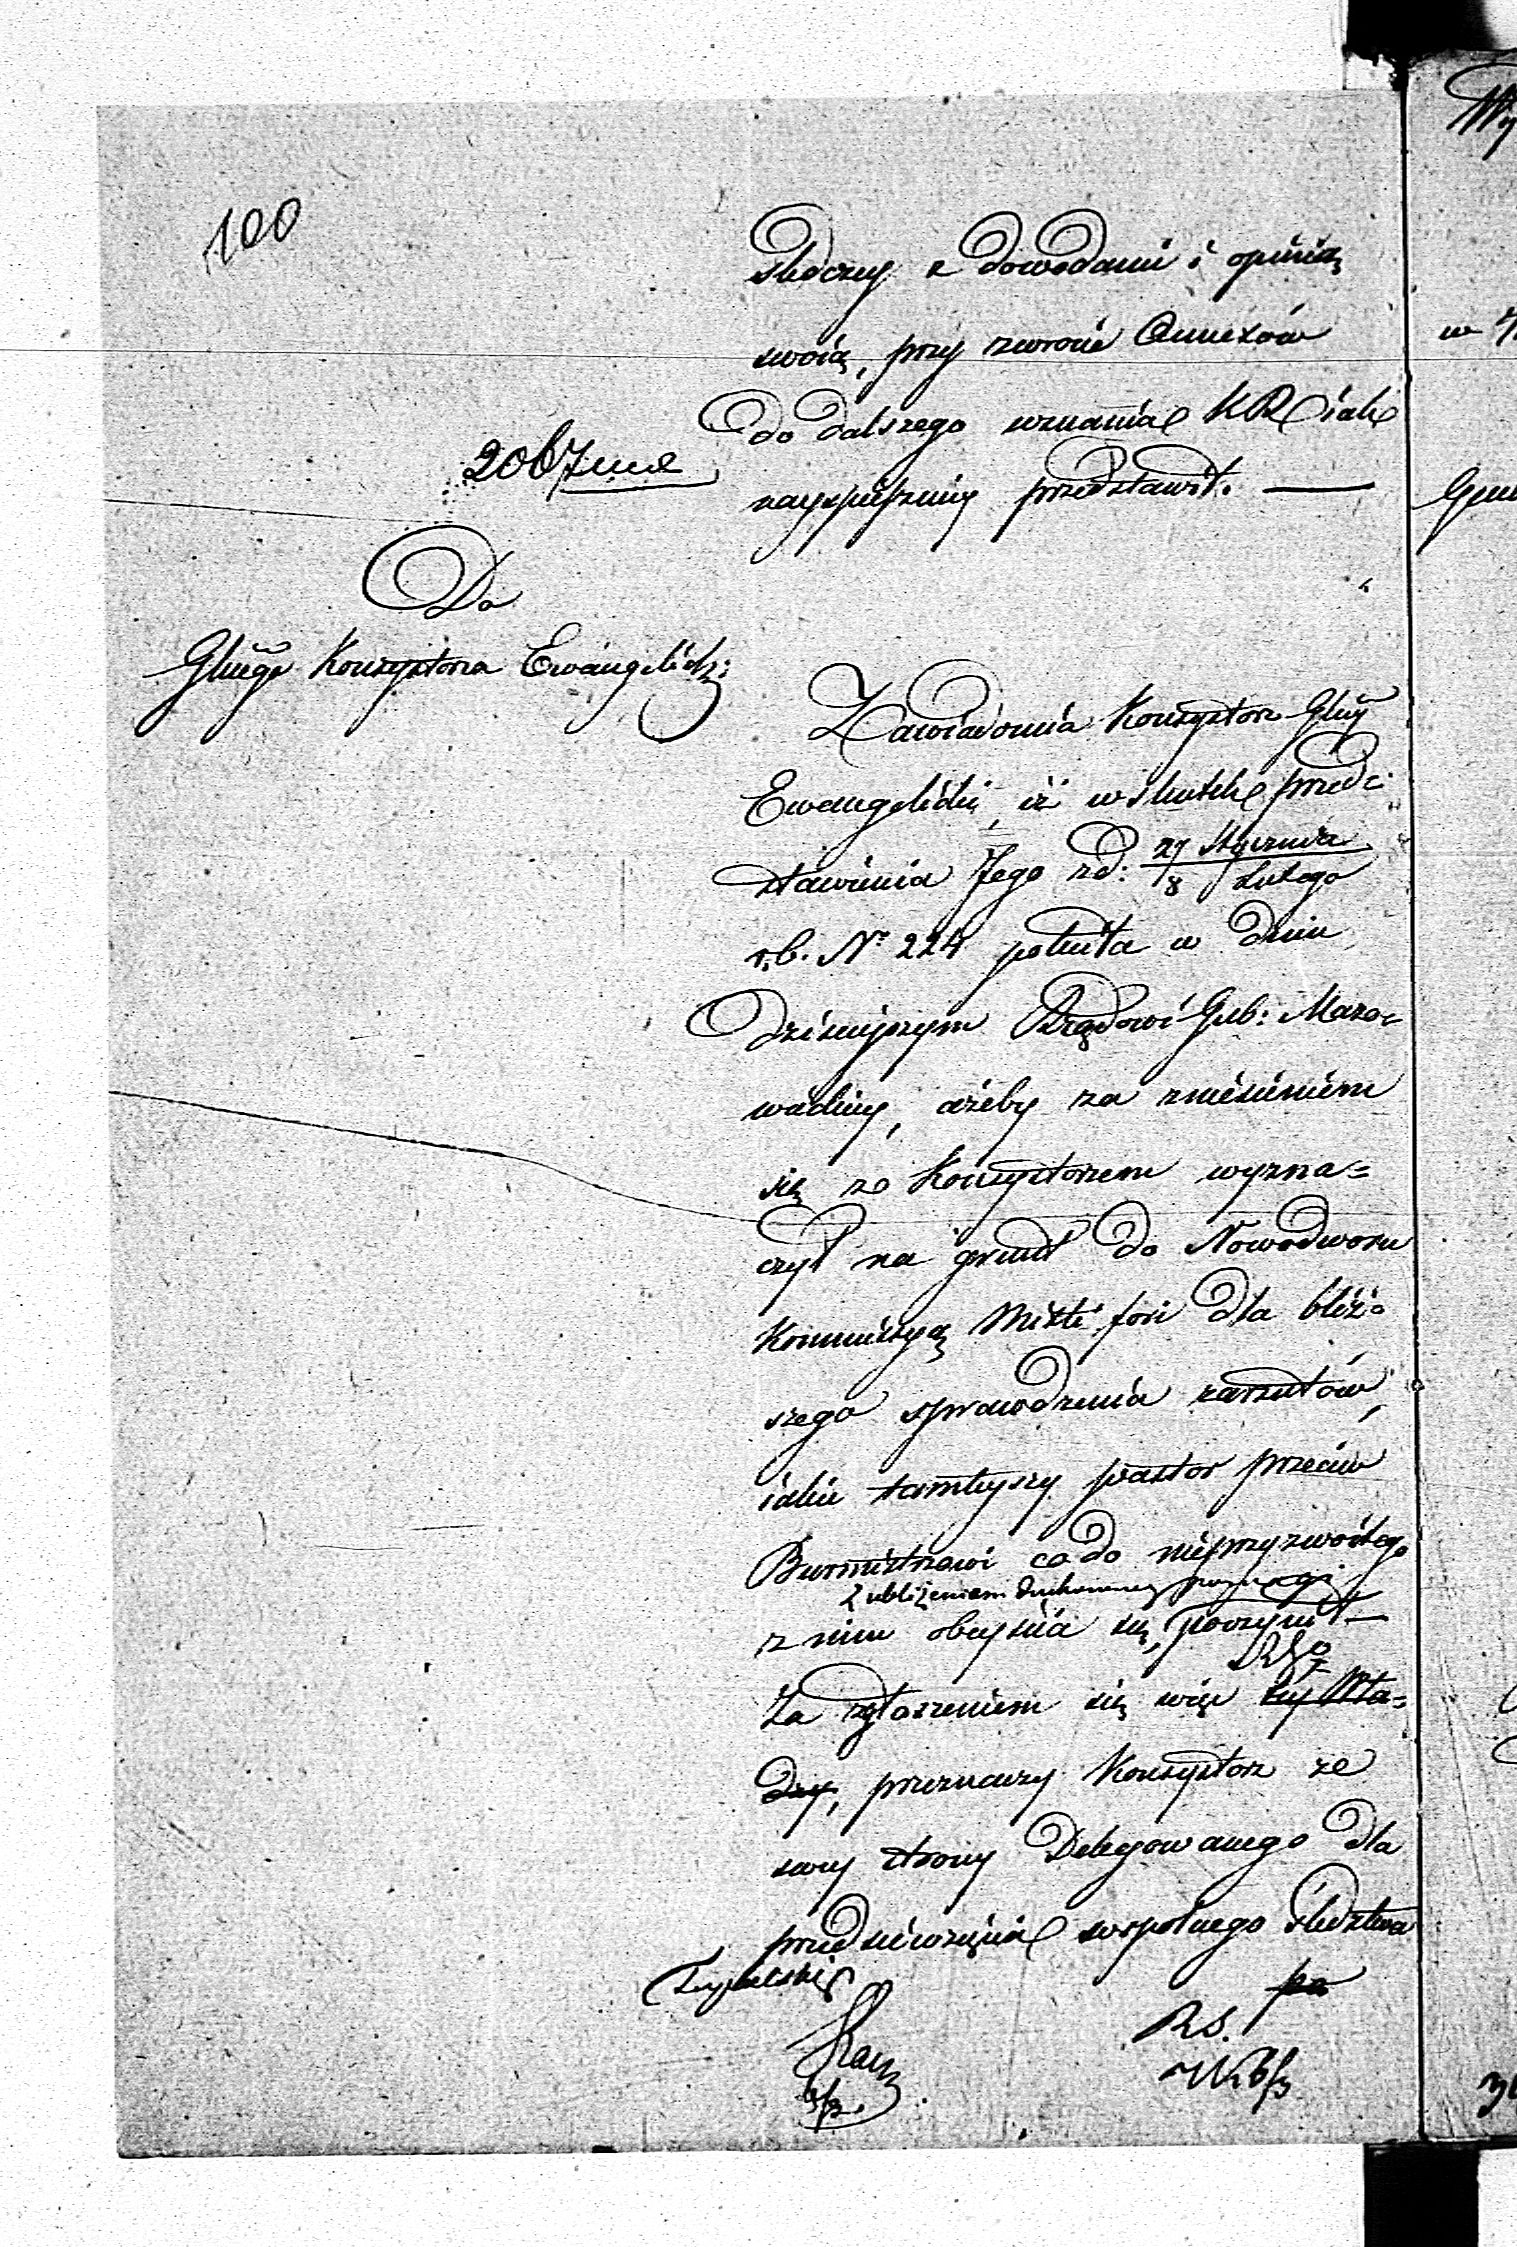 100
śledczy z dowodami i opinią
swoią, przy zwrocie Annexów
do dalszego uznania KR iak
nayspieszniey przedstawił. —
2067
Do
Głnego Konsystorza Ewangelick:
Zawiadomia Konsystorz Głny
Ewangelicki, iż w skutek przed-
stawienia Jego z d: 27 Stycznia / 8 Lutego
r.b. N° 224 poleciła w dniu
dzisieyszym Rządowi Gub: Mazo-
wieckiey, ażeby za zniesieniem
się z Konsystorzem wyzna=
czył na grunt do Nowodworu
Kommissyą Mixti fori dla bliż-
szego sprawdzenia zarzutów,
iakie tamteyszy pastor przeciw
Burmistrzowi co do nieprzyzwoitego
z ubliżeniem duchowney powagi
z nim obeyścia się, poczynił —
Za zgłoszeniem się więc tey Wła=
dzy, przeznaczy Konsystorz ze
swey strony Delegowanego dla
przedsięwzięcia wspólnego śledztwa
RS.